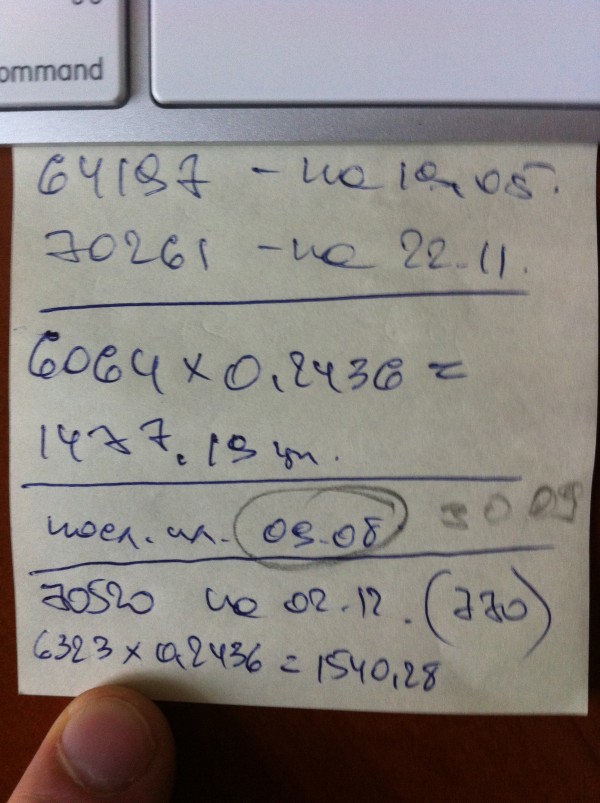 ommand
64197 - на 19.05.
70261 - на 22.11.
6064 × 0,2436 =
1477.19 грн.
посл. пл. 09.08 30 09
70520 на 02.12. (770)
6323 × 0,2436 = 1540,28